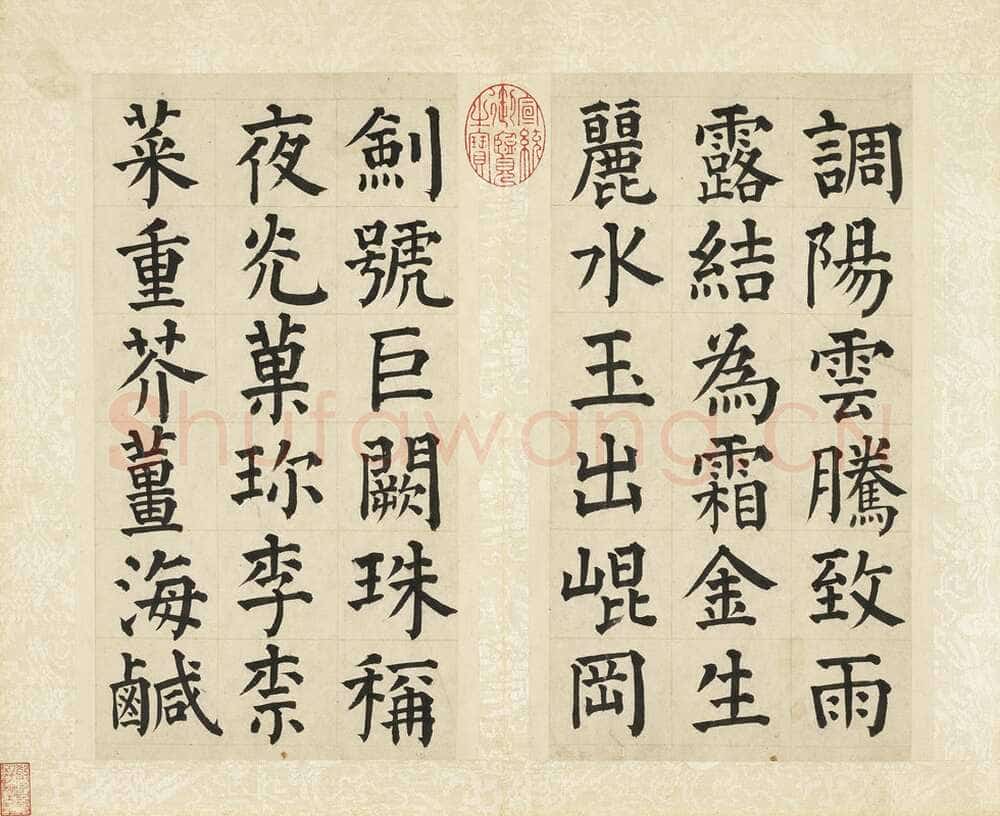 調陽雲騰致雨
露結為霜金生
麗水玉出崐岡
劍號巨闕珠稱
夜光菓珎李柰
菜重芥薑海鹹
宣統御覽之寶
Shufawang.CN